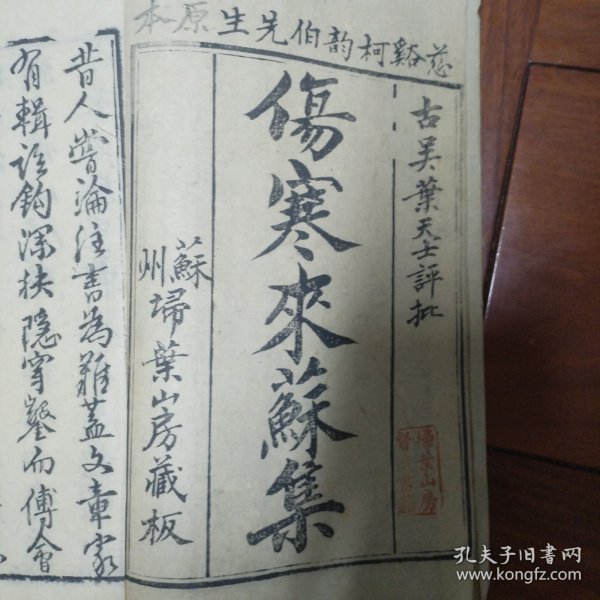 慈谿柯韵伯先生原本
古吴葉天士評批
傷寒來蘇集
蘇州埽葉山房藏板
埽葉山房
昔人嘗論注書為難蓋文章家
有輯詁鈎深抉隐穿鑿而傅會
孔夫子旧书网
www.kongfz.com